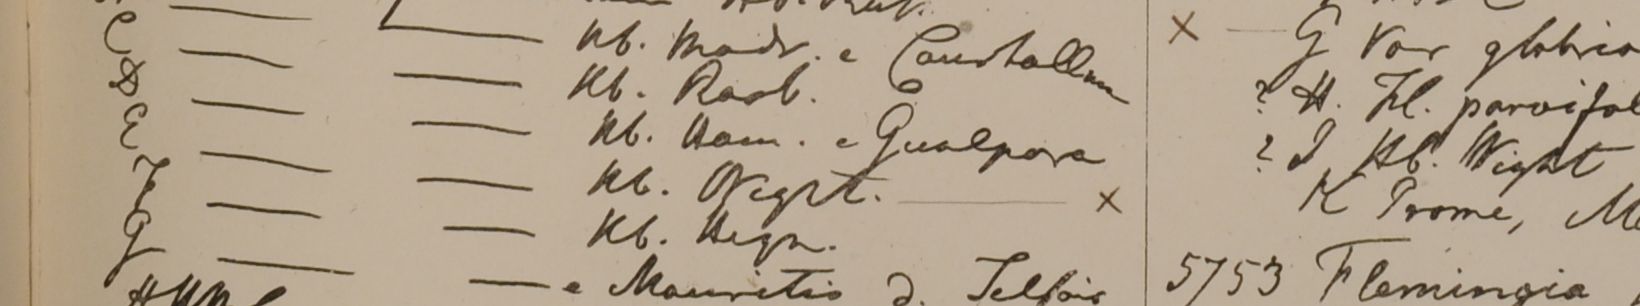 C — — Hb. Madr. e Courtallum
D — — Hb. Roxb.
E — — Hb. Ham. e Gualpara
F — — Hb. Wight. — x
G — — Hb. Heyn.
— e Mauritio d. Telfair
x — G Var glabrio
? H. Fl. parvifol
? I Hb. Wight
K Prome, M
5753 Flemingia